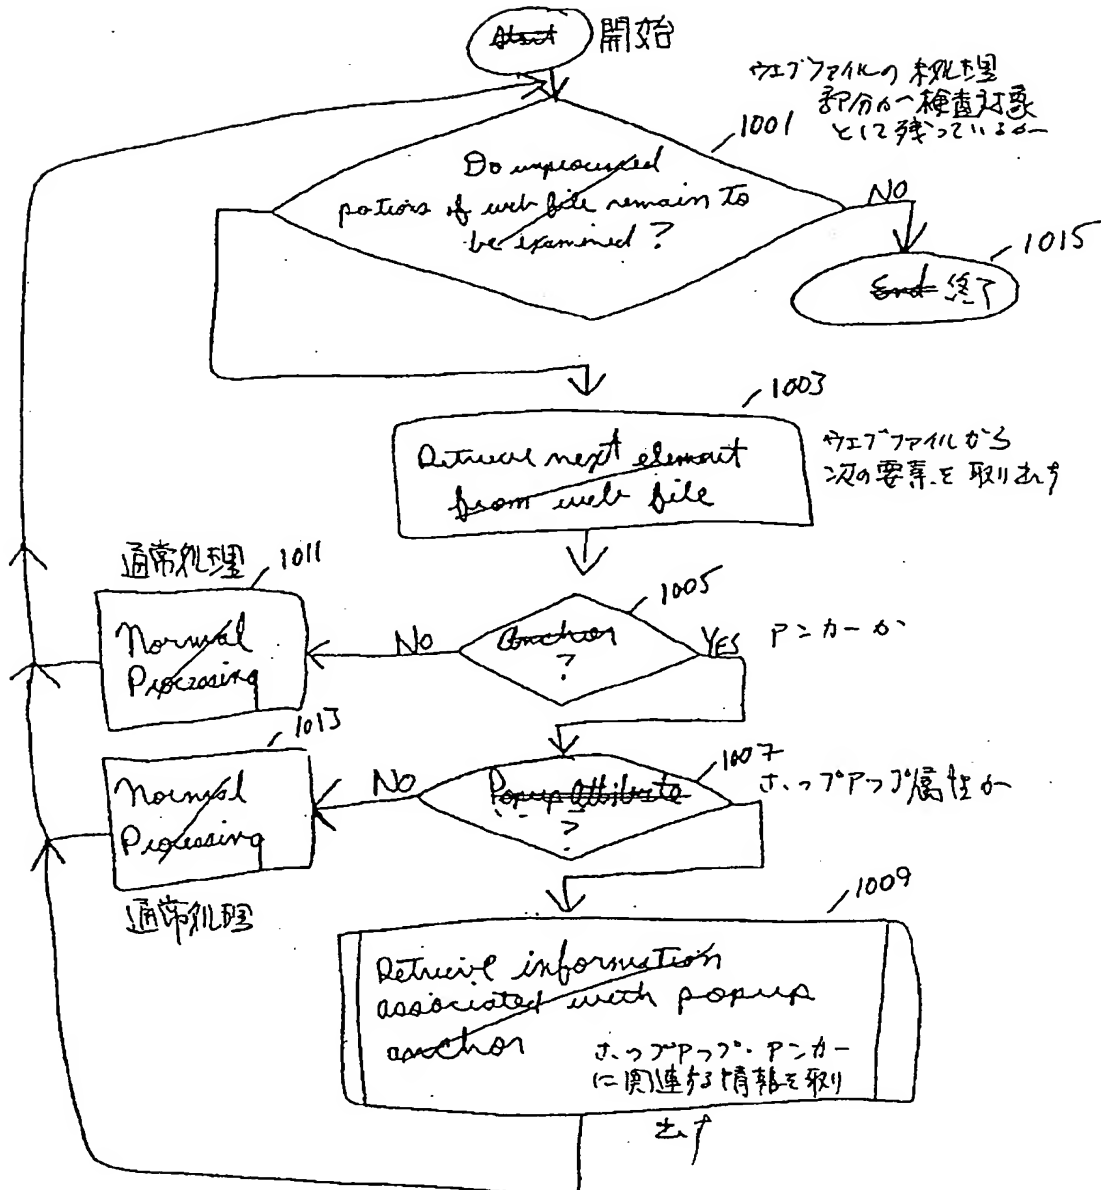 Start 開始
ウェブファイルの未処理
部分が検査対象
として残っているか
1001
Do unprocessed
potions of web file remain to
be examined ?
NO
1015
End 終了
1003
Retrieve next element
from web file
ウェブファイルから
次の要素を取り出す
通常処理
1011
Normal
Processing
No
1005
Anchor
?
YES
アンカーか
1013
Normal
Processing
通常処理
No
1007
Popup Attribute
?
ポップアップ属性か
1009
Retrieve information
associated with popup
anchor
ポップアップ・アンカー
に関連する情報を取り
出す